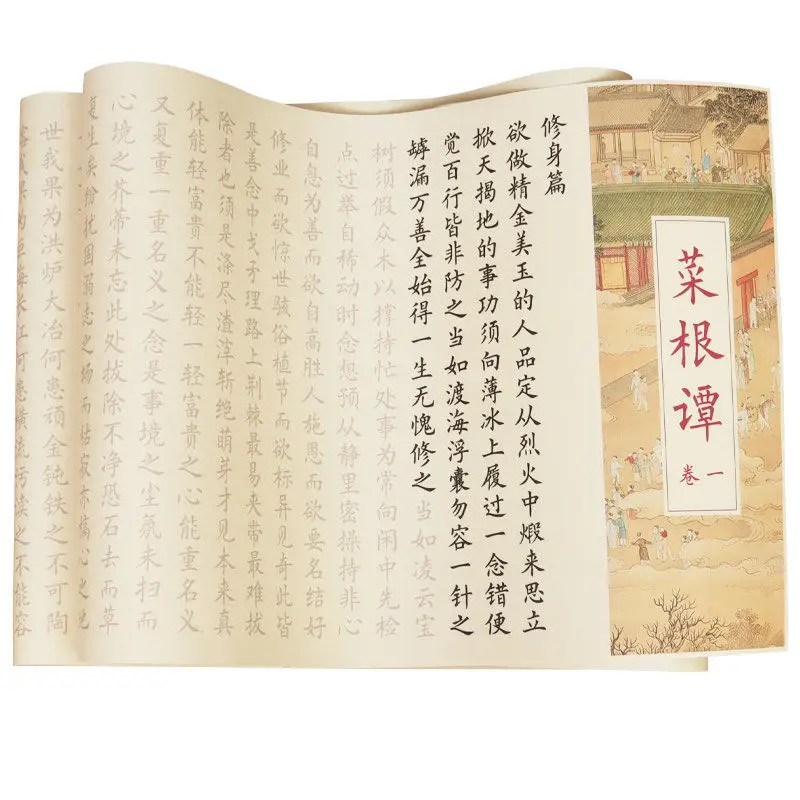 菜根谭
卷一
修身篇
欲做精金美玉的人品定从烈火中煅来思立
掀天揭地的事功须向薄冰上履过一念错便
觉百行皆非防之当如渡海浮囊勿容一针之
罅漏万善全始得一生无愧修之当如凌云宝
树须假众木以撑持忙处事为常向闲中先检
点过举自稀动时念想预从静里密操持非心
自息为善而欲自高胜人施恩而欲要名结好
修业而欲惊世骇俗植节而欲标异见奇此皆
是善念中戈矛理路上荆棘最易夹带最难拔
除者也须是涤尽渣滓斩绝萌芽才见本来真
体能轻富贵不能轻一轻富贵之心能重名义
又复重一重名义之念是事境之尘氛未扫而
心境之芥蒂未忘此处拔除不净恐石去而草
复生矣纷扰固溺志之场而枯寂亦槁心之地
世我果为洪炉大冶何患顽金钝铁之不可陶
我果为巨海长江何患横流污渎之不能容